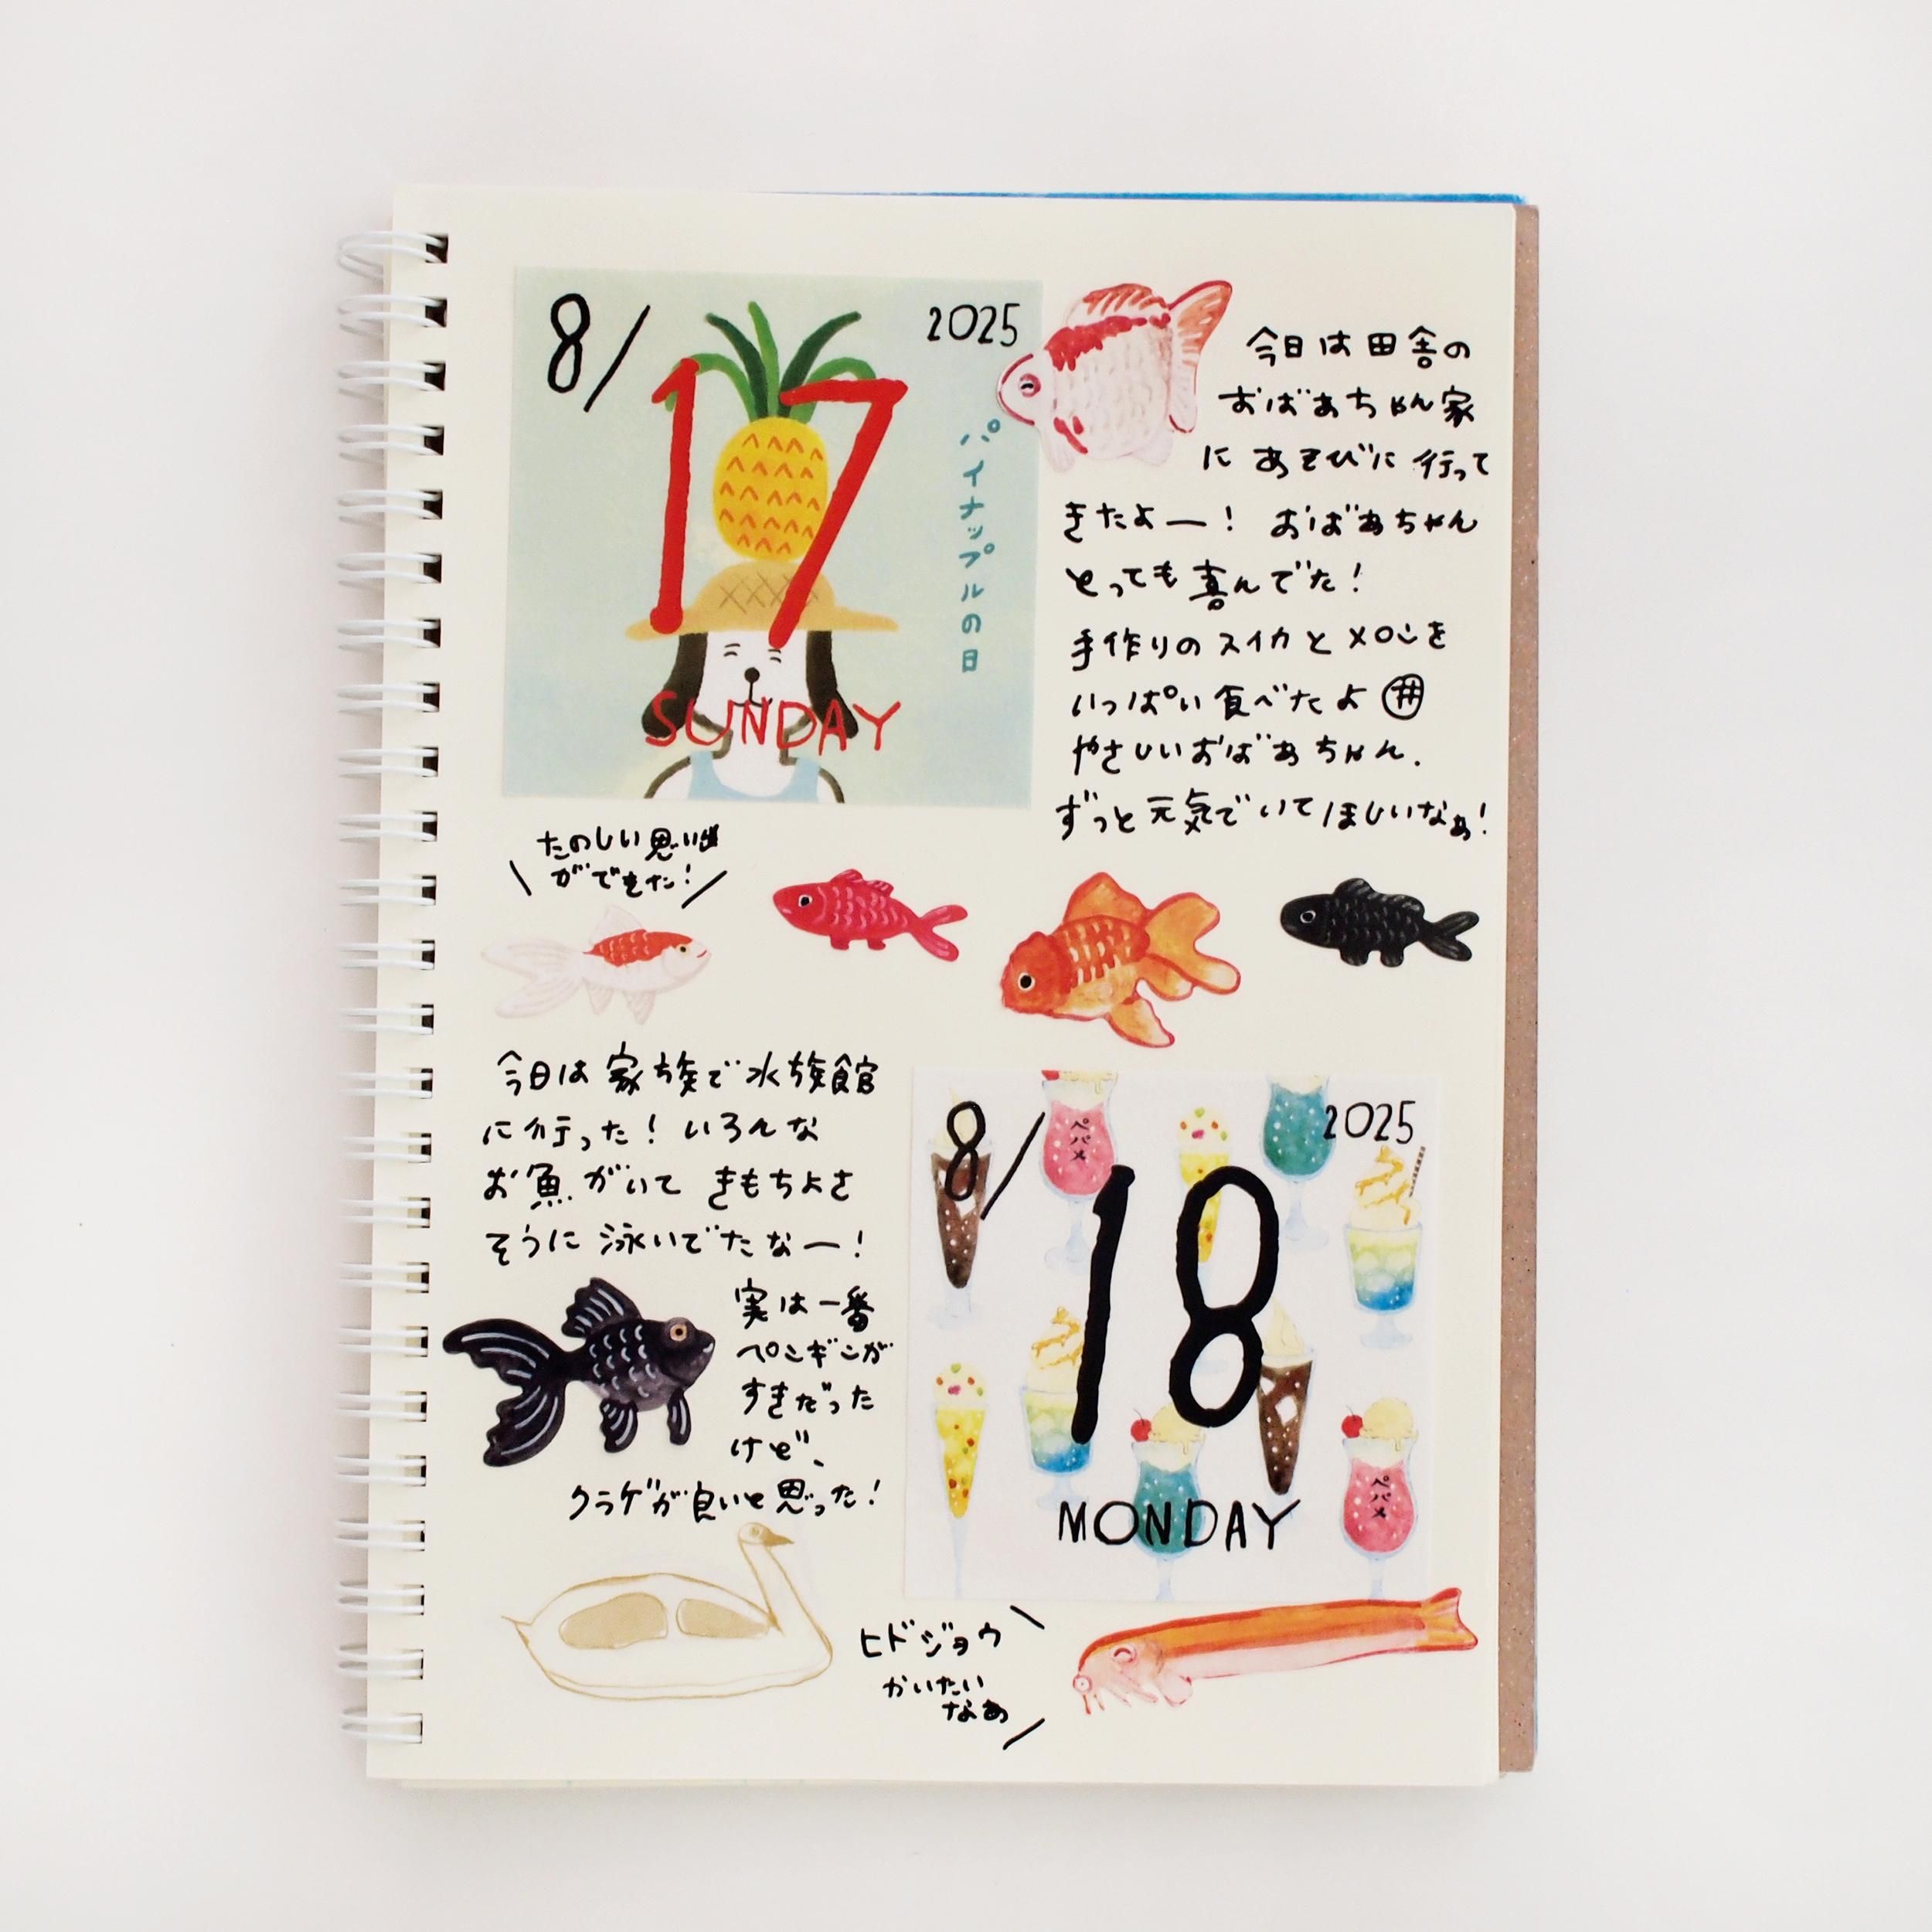 8/
17
2025
パイナップルの日
SUNDAY
今日は田舎の
おばあちゃん家
にあそびに行って
きたよー! おばあちゃん
とっても喜んでた!
手作りのスイカとメロンを
いっぱい食べたよ
やさしいおばあちゃん.
ずっと元気でいてほしいなぁ!
たのしい思い出
ができた!
今日は家族で水族館
に行った! いろんな
お魚がいてきもちよさ
そうに泳いでたなー!
実は一番
ペンギンが
すきだった
けど、
クラゲが良いと思った!
8/
18
2025
ペパメ
ペパメ
MONDAY
ヒドジョウ
かいたい
なぁ